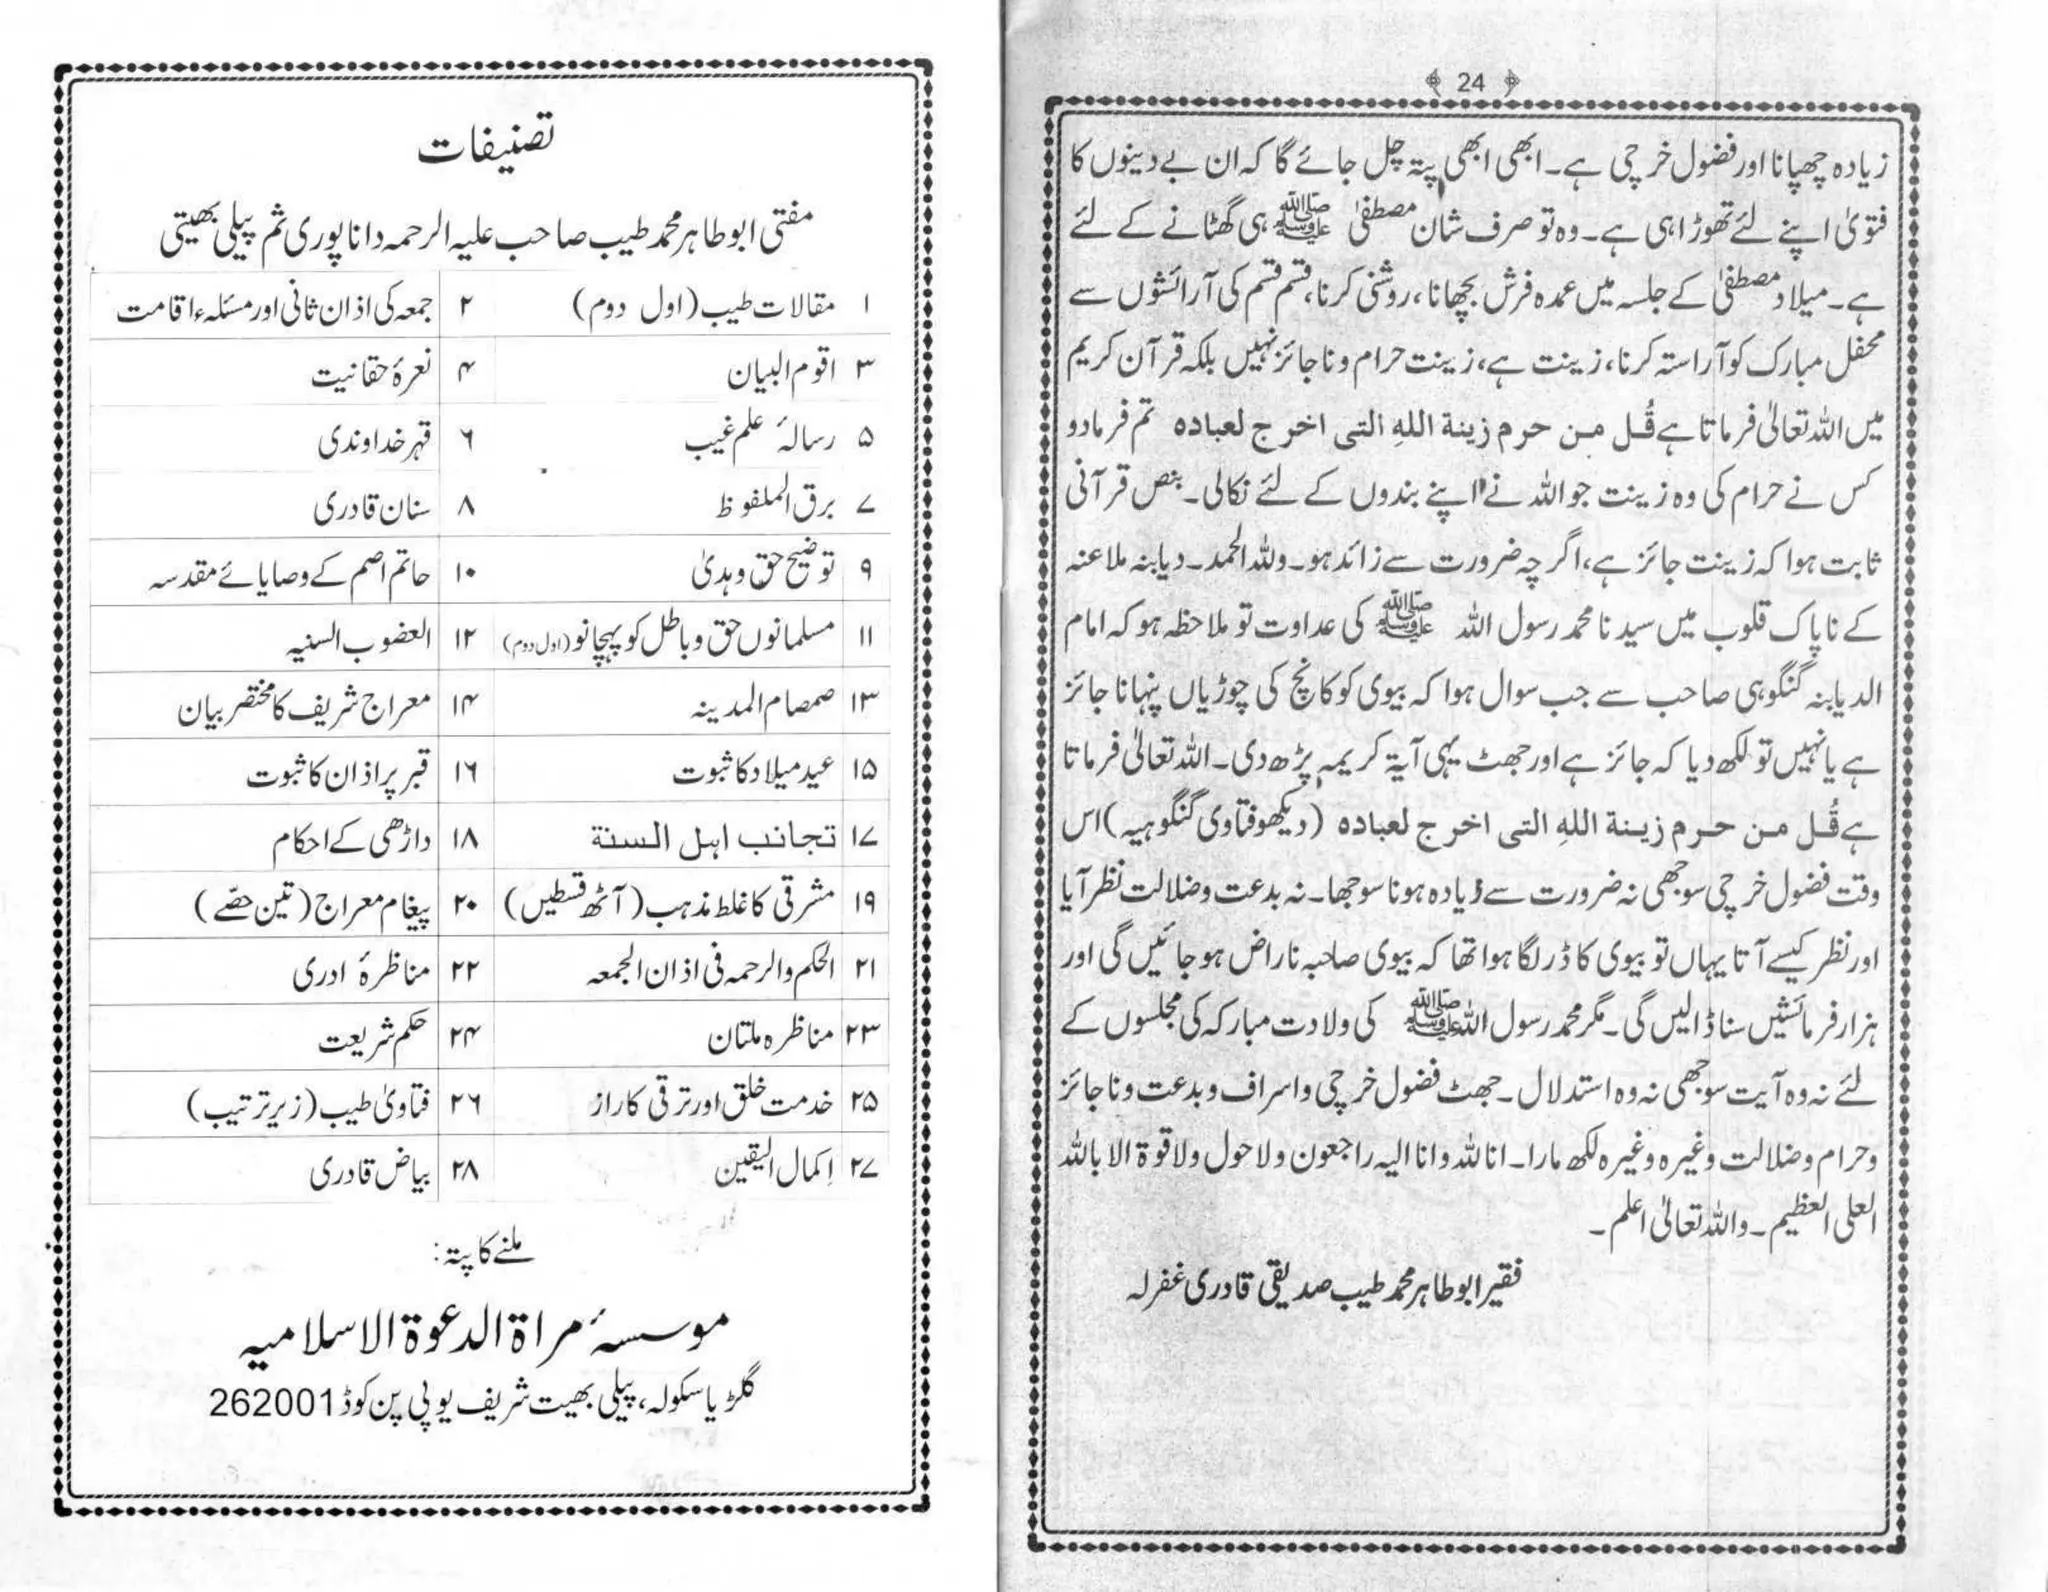 24
زیادہ چھپانا اور فضول خرچی ہے۔ ابھی ابھی پتہ چل جائے گا کہ ان بے دینوں کا
فتویٰ اپنے لئے تھوڑا ہی ہے۔ وہ تو صرف شان مصطفیٰ ﷺ ہی گھٹانے کے لئے
ہے۔ میلاد مصطفیٰ کے جلسہ میں عمدہ فرش بچھانا، روشنی کرنا، قسم قسم کی آرائشوں سے
محفل مبارک کو آراستہ کرنا، زینت ہے، زینت حرام و ناجائز نہیں بلکہ قرآن کریم
میں اللہ تعالیٰ فرماتا ہے قُل من حرم زینة اللهِ التی اخرج لعباده تم فرمادو
کس نے حرام کی وہ زینت جو اللہ نے اپنے بندوں کے لئے نکالی۔ بنص قرآنی
ثابت ہوا کہ زینت جائز ہے، اگرچہ ضرورت سے زائد ہو۔ وللہ الحمد۔ دیابنہ ملاعنہ
کے ناپاک قلوب میں سیدنا محمد رسول اللہ ﷺ کی عداوت تو ملاحظہ ہو کہ امام
الدیابنہ گنگوہی صاحب سے جب سوال ہوا کہ بیوی کو کانچ کی چوڑیاں پنہانا جائز
ہے یا نہیں تو لکھ دیا کہ جائز ہے اور جھٹ یہی آیۃ کریمہ پڑھ دی۔ اللہ تعالیٰ فرماتا
ہے قُل من حرم زینة اللهِ التی اخرج لعباده (دیکھو فتاوی گنگوہیہ) اس
وقت فضول خرچی سوجھی نہ ضرورت سے زیادہ ہونا سوجھا۔ نہ بدعت وضلالت نظر آیا
اور نظر کیسے آتا یہاں تو بیوی کا ڈر لگا ہوا تھا کہ بیوی صاحبہ ناراض ہو جائیں گی اور
ہزار فرمائشیں سنا ڈالیں گی۔ مگر محمد رسول اللہ ﷺ کی ولادت مبارکہ کی مجلسوں کے
لئے نہ وہ آیت سوجھی نہ وہ استدلال۔ جھٹ فضول خرچی و اسراف و بدعت و ناجائز
وحرام وضلالت وغیرہ وغیرہ لکھ مارا۔ انا للہ وانا الیہ راجعون ولا حول ولا قوۃ الا باللہ
العلی العظیم۔ واللہ تعالیٰ اعلم۔
فقیر ابوطاہر محمد طیب صدیقی قادری غفرلہ
تصنیفات
مفتی ابوطاہر محمد طیب صاحب علیہ الرحمہ داناپوری ثم پیلی بھیتی
۱ مقالات طیب (اول دوم) ۲ جمعہ کی اذان ثانی اور مسئلہء اقامت
۳ اقوم البیان ۴ نعرۂ حقانیت
۵ رسالۂ علم غیب ۶ قہر خداوندی
۷ برق الملفوظ ۸ سنان قادری
۹ توضیح حق وہدیٰ ۱۰ حاتم اصم کے وصایائے مقدسہ
۱۱ مسلمانوں حق و باطل کو پہچانو (اول دوم) ۱۲ العضوب السنیہ
۱۳ صمصام المدینہ ۱۴ معراج شریف کا مختصر بیان
۱۵ عید میلاد کا ثبوت ۱۶ قبر پر اذان کا ثبوت
۱۷ تجانب اہل السنة ۱۸ داڑھی کے احکام
۱۹ مشرقی کا غلط مذہب (آٹھ قسطیں) ۲۰ پیغام معراج (تین حصّے)
۲۱ الحکم والرحمہ فی اذان الجمعہ ۲۲ مناظرۂ ادری
۲۳ مناظرہ ملتان ۲۴ حکم شریعت
۲۵ خدمت خلق اور ترقی کا راز ۲۶ فتاویٰ طیب (زیر ترتیب)
۲۷ اِکمال الیقین ۲۸ بیاض قادری
ملنے کا پتہ:
موسسۂ مراۃ الدعوۃ الاسلامیہ
گلڑیا سکولہ، پیلی بھیت شریف یوپی پن کوڈ 262001